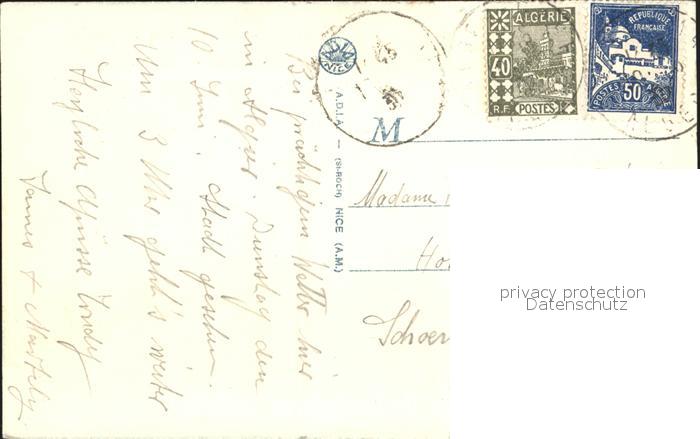 Bei prächtigem Wetter hier
in Algier. Dienstag den
10 Juni. Stadt gesehen.
Um 3 Uhr geht's weiter
Herzliche Grüsse Trudy
James +
NICE
A.D.I.A. — (St-ROCH) NICE (A.M.)
M
ALGÉRIE
40
R.F. POSTES
RÉPUBLIQUE
FRANÇAISE
POSTES 50 ALGÉRIE
Madame
privacy protection
Datenschutz